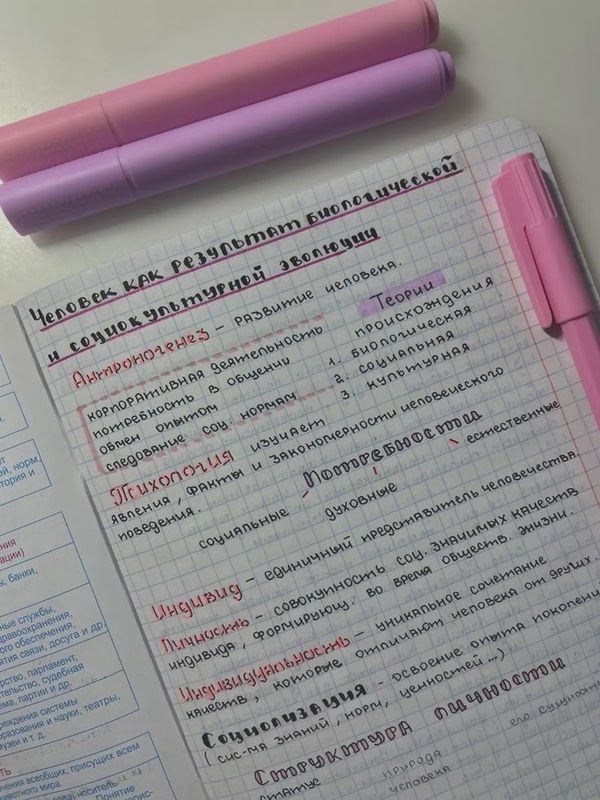 Человек как результат биологической
и социокультурной эволюции
Антропогенез – развитие человека.
корпоративная деятельность
потребность в общении
обмен опытом
следование соц. нормам
Теории
происхождения
1. биологическая
2. социальная
3. культурная
Психология изучает
явления, факты и закономерности человеческого
поведения.
Потребности
социальные
духовные
естественные
Индивид – единичный представитель человечества.
Личность – совокупность соц. значимых качеств
индивида, формирующ. во время обществ. жизни.
Индивидуальность – уникальное сочетание
качеств, которые отличают человека от других.
Социализация – освоение опыта поколений
(сис-ма знаний, норм, ценностей...)
Структура личности
статус
природа
человека
его сущность
ей, норм,
тория и
ния
ации)
ы, банки,
ные службы,
дравоохранения,
ого обеспечения,
ятия связи, досуга и др.
рство, парламент,
тельство, судебная
ема, партии и др.
реждения системы
разования и науки, театры,
узеи и т. д.
чения всеобщих, присущих всем
Понятие